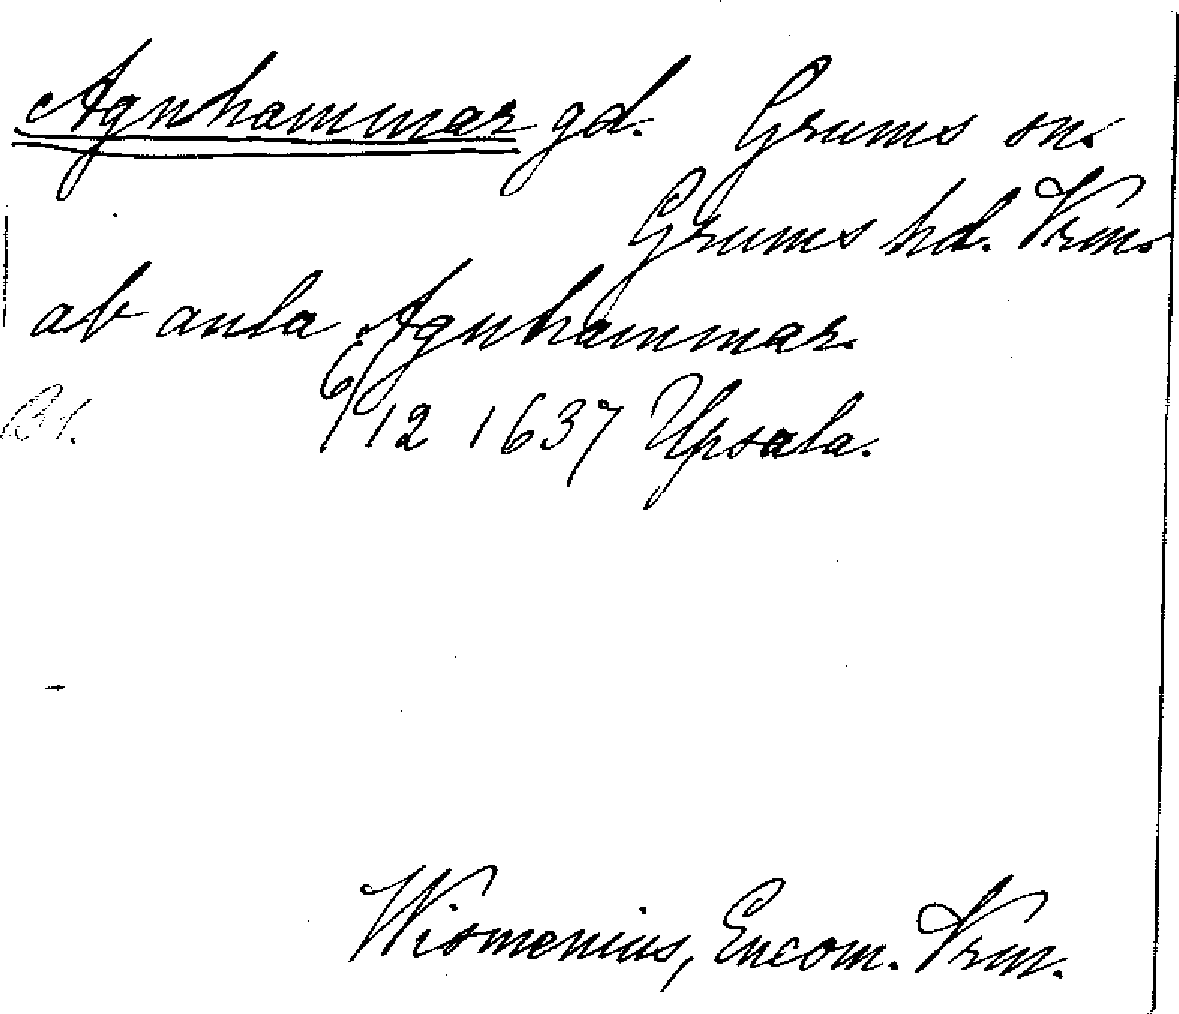 Agnhammar gd. Grums sn.
Grums hd. Vrm.
ab aula Agnhammar.
Bl. 6/12 1637 Upsala.
Wismenius, Encom. Vrm.